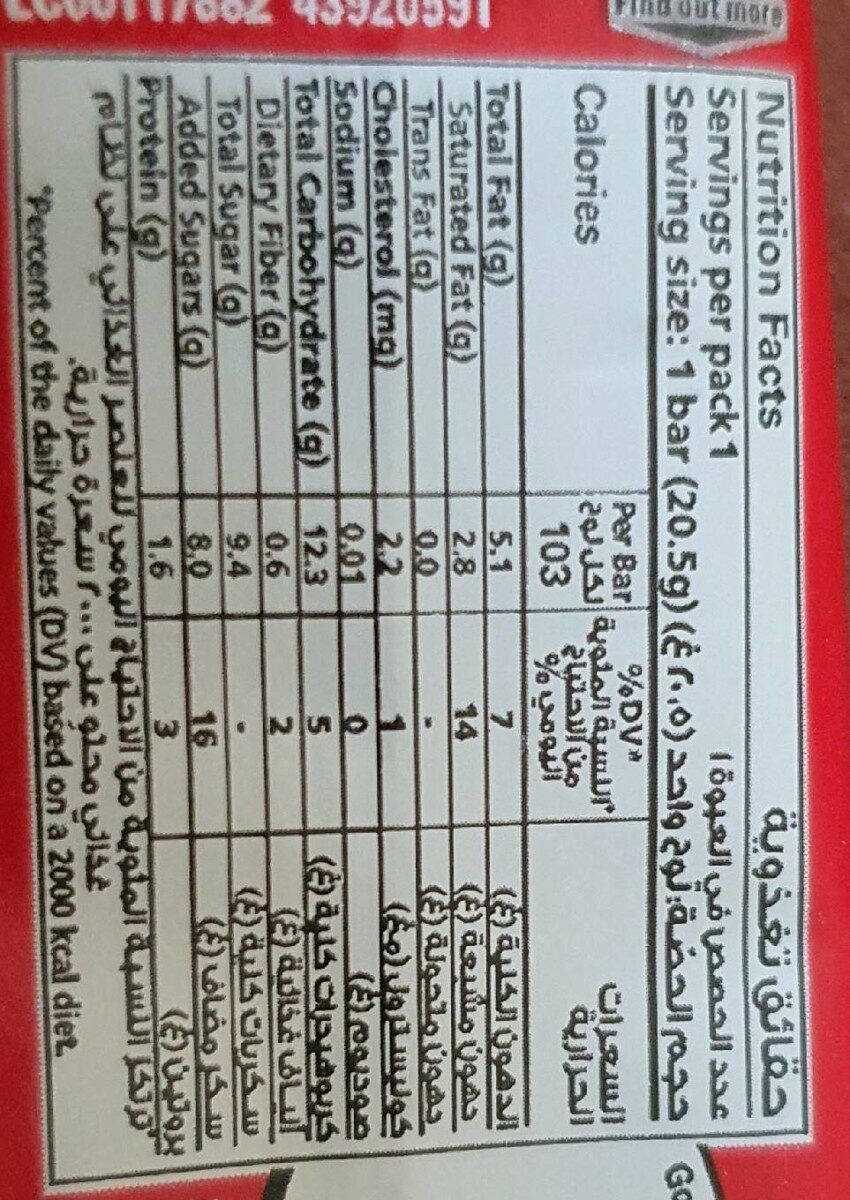 Find out more
Nutrition Facts حقائق تغذوية
Servings per pack 1 عدد الحصص في العبوة ١
Serving size: 1 bar (20.5g) (٢٠،٥ غ) حجم الحصة: لوح واحد
Per Bar لكل لوح %DV* *النسبة المئوية من الاحتياج اليومي %
Calories 103 السعرات الحرارية
Total Fat (g) 5.1 7 الدهون الكلية (غ)
Saturated Fat (g) 2.8 14 دهون مشبعة (غ)
Trans Fat (g) 0.0 - دهون متحولة (غ)
Cholesterol (mg) 2.2 1 كوليسترول (مغ)
Sodium (g) 0.01 0 صوديوم (غ)
Total Carbohydrate (g) 12.3 5 كربوهيدرات كلية (غ)
Dietary Fiber (g) 0.6 2 ألياف غذائية (غ)
Total Sugar (g) 9.4 - سكريات كلية (غ)
Added Sugars (g) 8.0 16 سكر مضاف (غ)
Protein (g) 1.6 3 بروتين (غ)
*ترتكز النسبة المئوية من الاحتياج اليومي للعنصر الغذائي على نظام
غذائي محتو على ٢٠٠٠ سعرة حرارية.
*Percent of the daily values (DV) based on a 2000 kcal diet